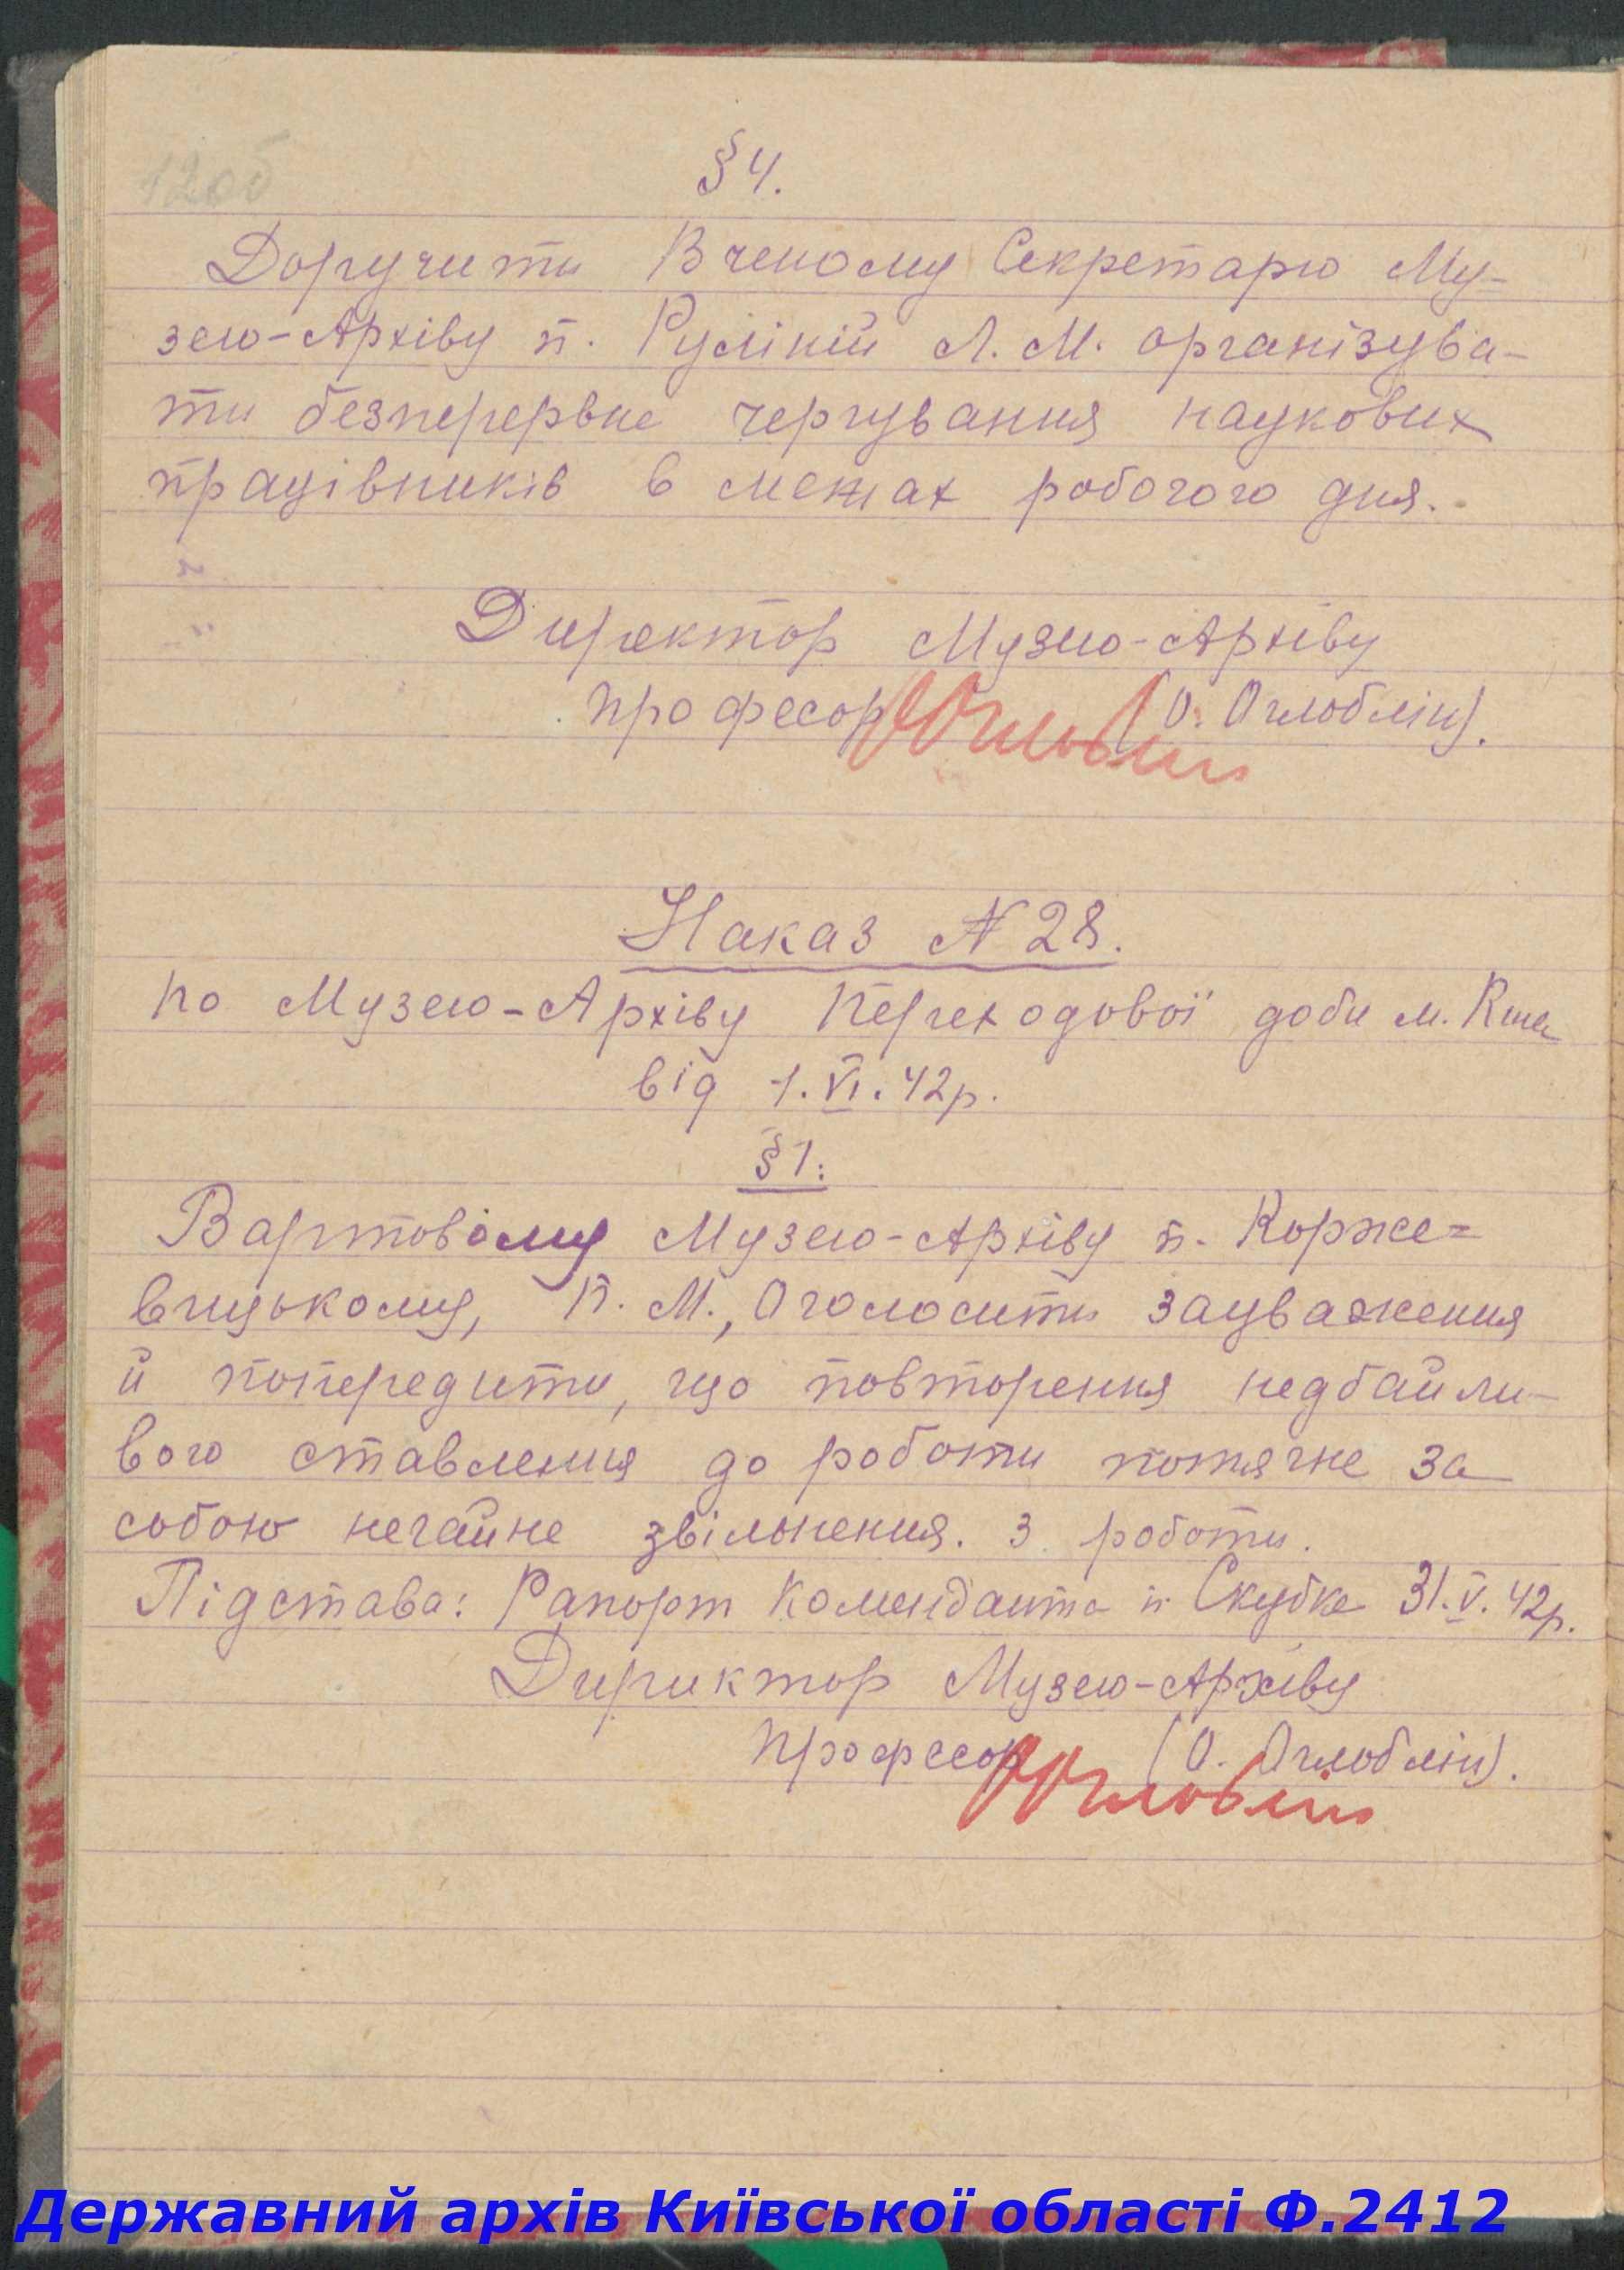 12об
§ 4.
Доручити Вченому Секретарю Му-
зею-Архіву п. Руліній Л. М. організува-
ти безперервне чергування наукових
працівників в межах робочого дня.
Директор Музею-Архіву
професор (О. Оглоблін).
Наказ N 28.
по Музею-Архіву Переходової доби м. Києва
від 1.VI.42р.
§ 1.
Вартовому Музею-Архіву п. Корже-
вицькому, П. М., Оголосити зауваження
й попередити, що повторення недбайли-
вого ставлення до роботи потягне за
собою негайне звільнення. з роботи.
Підстава: Рапорт Коменданта п. Скубка 31.V.42р.
Директор Музею-Архіву
Професор (О. Оглоблін).
Державний архів Київської області Ф.2412